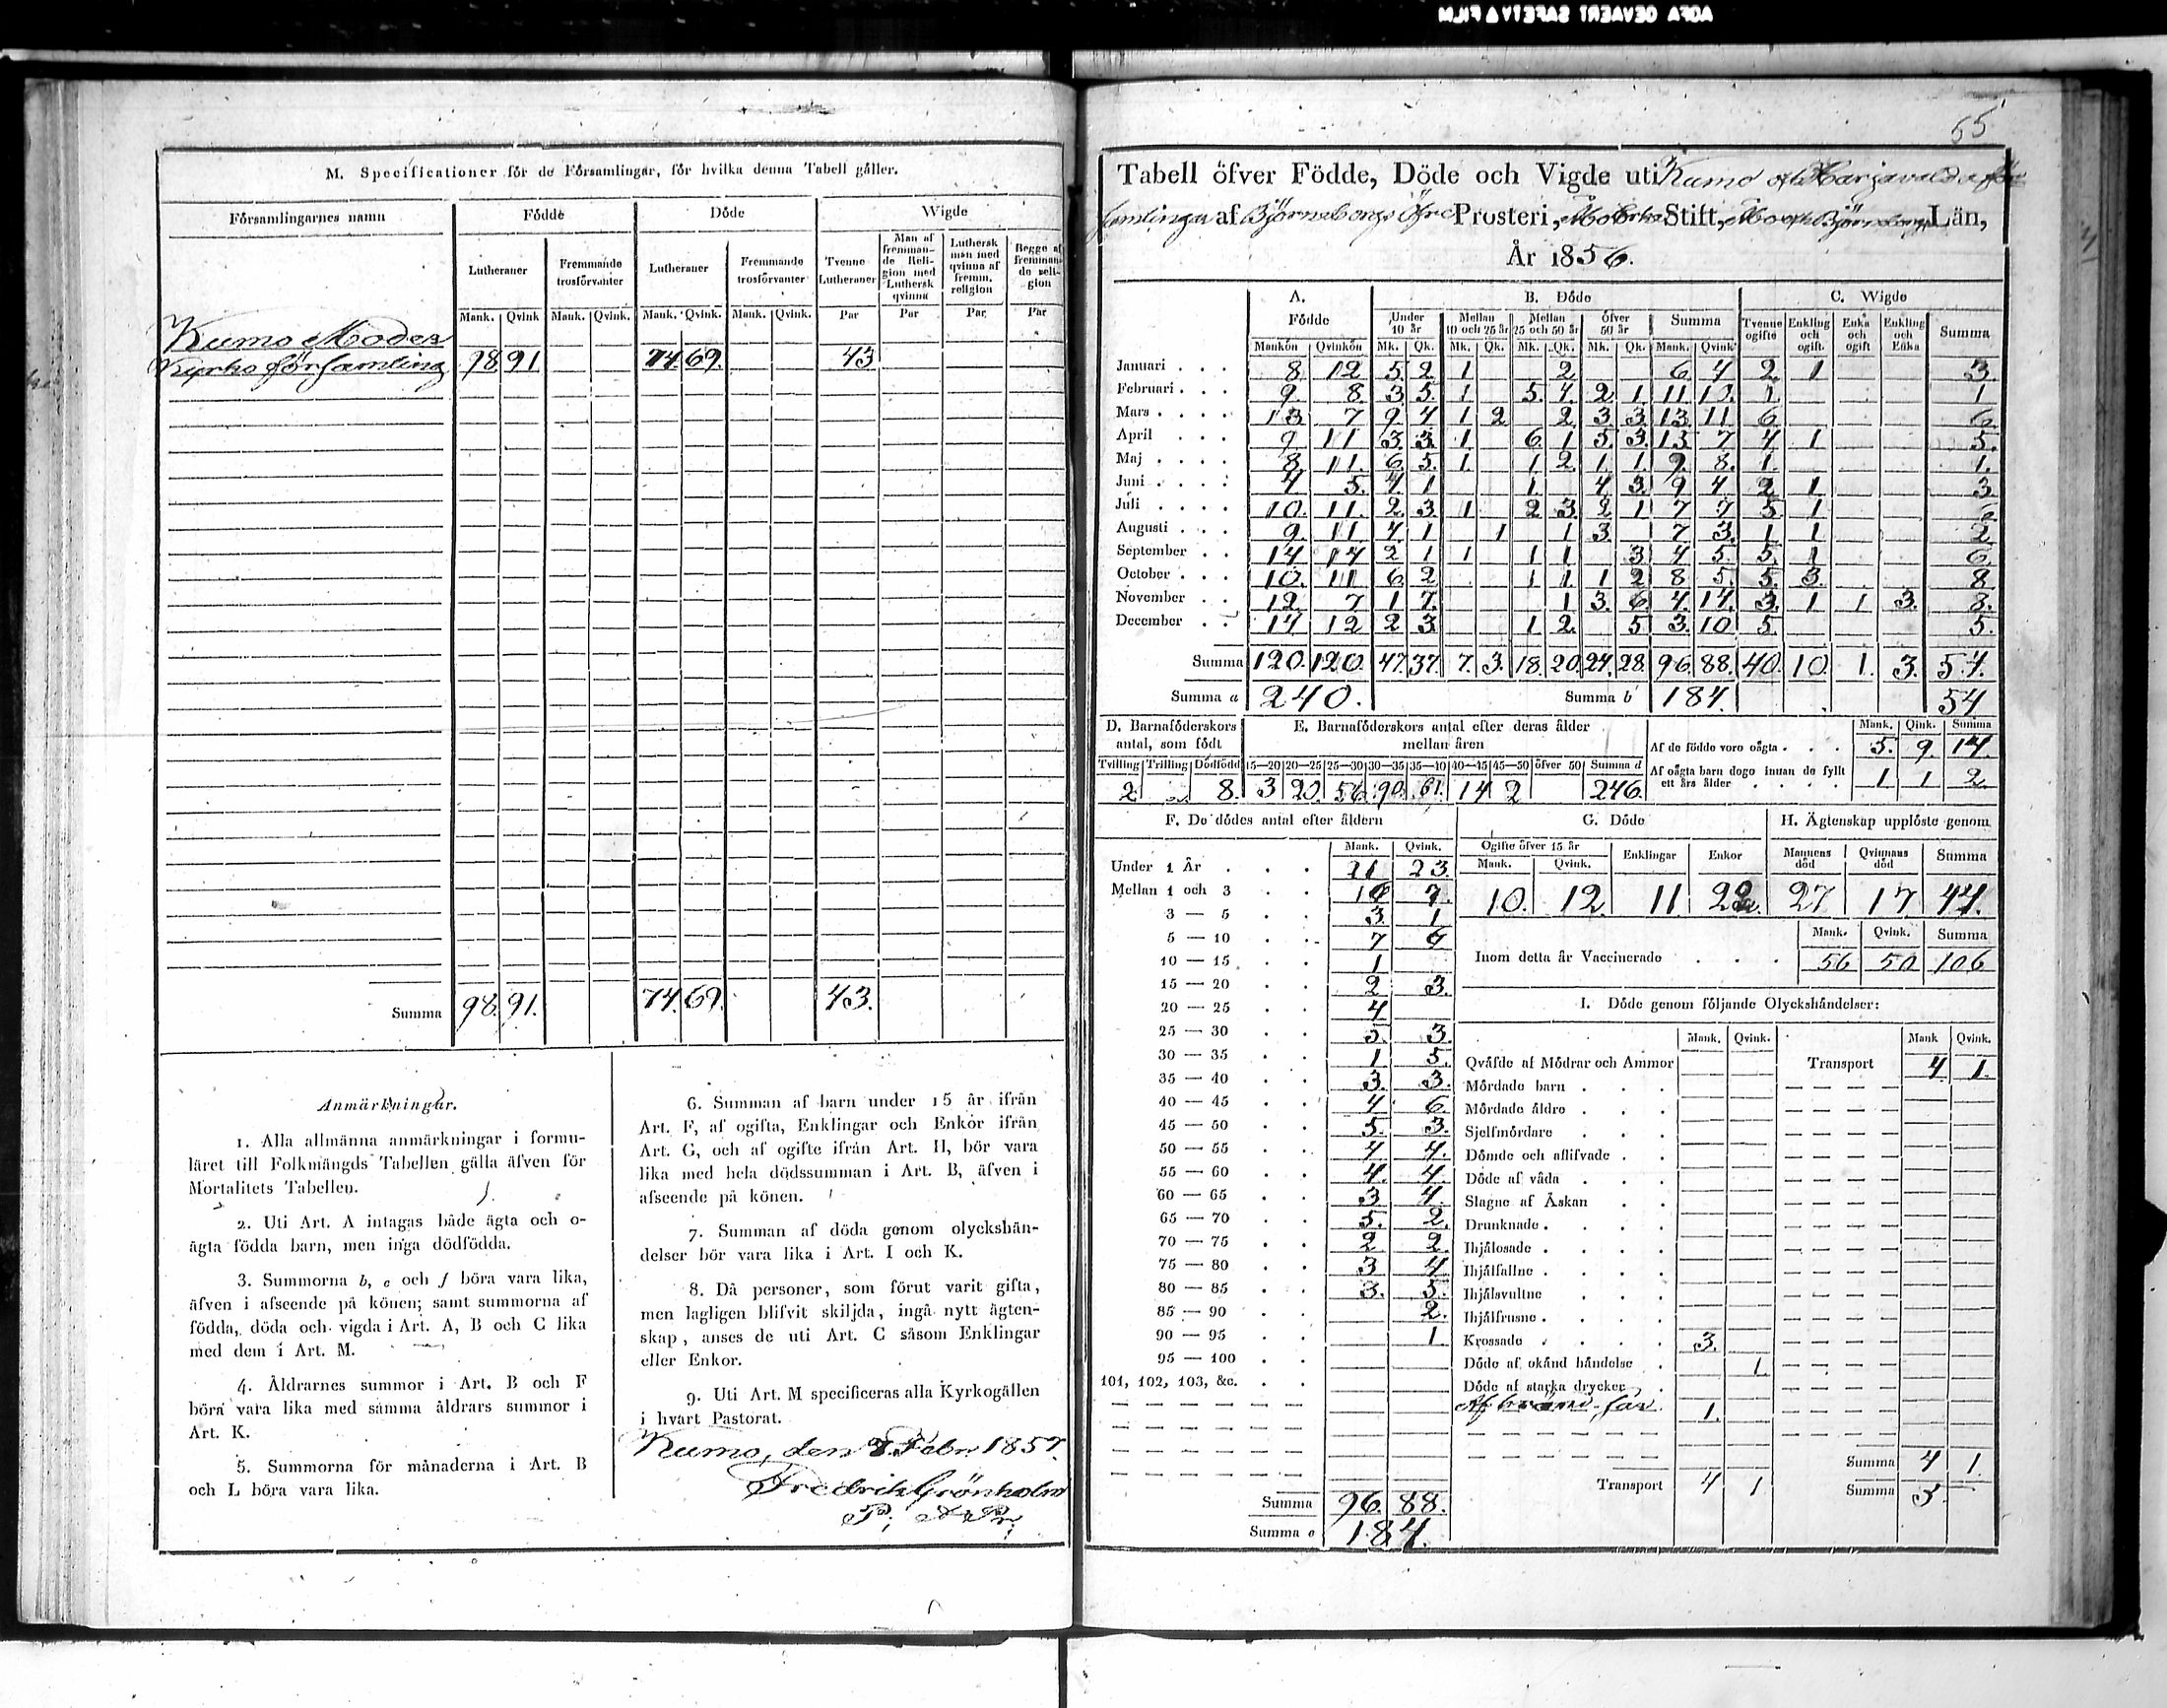 M. Specificationer för de Församlingar, för hvilka denna Tabell gäller.
Församlingarnes namn Födde Döde Wigde
Lutheraner Fremmande trosförvanter Lutheraner Fremmande trosförvanter Tvenne Lutheraner Man af fremmande Religion med Luthersk qvinna Luthersk man med qvinna af fremm. religion Begge af fremmande religion
Mank. Qvink Mank. Qvink. Mank. Qvink. Mank. Qvink. Par Par Par Par
Kumo Moder
Kyrko församling 98 91 74. 69. 43
Summa 98. 91. 74. 69. 43.
Anmärkningar.
1. Alla allmänna anmärkningar i formu-
läret till Folkmängds Tabellen gälla äfven för
Mortalitets Tabellen.
2. Uti Art. A intagas både ägta och o-
ägta födda barn, men inga dödfödda.
3. Summorna b, e och f böra vara lika,
äfven i afseende på könen; samt summorna af
födda, döda och vigda i Art. A, B och C lika
med dem i Art. M.
4. Åldrarnes summor i Art. B och F
böra vara lika med samma åldrars summor i
Art. K.
5. Summorna för månaderna i Art. B
och L böra vara lika.
6. Summan af barn under 15 år ifrån
Art. F, af ogifta, Enklingar och Enkor ifrån
Art. G, och af ogifte ifrån Art. H, bör vara
lika med hela dödssumman i Art. B, äfven i
afseende på könen.
7. Summan af döda genom olyckshän-
delser bör vara lika i Art. I och K.
8. Då personer, som förut varit gifta,
men lagligen blifvit skiljda, ingå nytt ägten-
skap, anses de uti Art. C såsom Enklingar
eller Enkor.
9. Uti Art. M specificeras alla Kyrkogällen
i hvart Pastorat.
Kumo, den 7 Febr. 1857.
Fredrik Grönholm
P; A Pr;
55
Tabell öfver Födde, Döde och Vigde uti Kumo och Harjavalda för
samlingar af Björneborgs Öfre Prosteri, Åbo Erke Stift, Åbo och Björneborgs Län,
År 1856.
A. Födde B. Döde C. Wigde
Under 10 år Mellan 10 och 25 år Mellan 25 och 50 år Öfver 50 år Summa Tvenne ogifte Enkling och ogift. Enka och ogift Enkling och Enka Summa
Mankön Qvinkön Mk. Qk. Mk. Qk. Mk. Qk. Mk. Qk. Mank. Qvink
Januari 8 12 5 2 1 2 6 4 2 1 3
Februari 9 8 3 5 1 5 4 2 1 11 10 1 1
Mars 13 7 9 4 1 2 2 3 3 13 11 6 6
April 9 11 3 3 1 6 1 5 3 13 7 4 1 5
Maj 8 11 6 5 1 1 2 1 1 9 8 1 1
Juni 4 5 4 1 1 4 3 9 4 2 1 3
Juli 10 11 2 3 1 2 3 2 1 7 7 5 1 6
Augusti 9 11 4 1 1 1 3 7 3 1 1 2
September 14 14 2 1 1 1 1 3 4 5 5 1 6
October 10 11 6 2 1 1 1 2 8 5 5 3 8
November 12 7 1 7 1 3 6 4 14 3 1 1 3 8
December 14 12 2 3 1 2 5 3 10 5 5
Summa 120. 120. 47. 37. 7. 3. 18. 20. 24. 28. 96. 88. 40. 10. 1. 3. 54.
Summa a 240. Summa b 184. 54
D. Barnaföderskors antal, som födt E. Barnaföderskors antal efter deras ålder mellan åren
Mank. Qink. Summa
Tvilling Trilling Dödfödd 15—20 20—25 25—30 30—35 35—40 40—45 45—50 öfver 50 Summa d
2 8. 3 20. 56. 90. 61. 14 2 246.
Af de födde voro oägta 5. 9. 14.
Af oägta barn dogo innan de fyllt ett års ålder 1 1 2
F. De dödes antal efter åldern
Mank. Qvink.
Under 1 År 21 23
Mellan 1 och 3 16 7
3 — 5 3 1
5 — 10 7 6
10 — 15 1
15 — 20 2 3
20 — 25 4
25 — 30 5 3
30 — 35 1 5
35 — 40 3 3
40 — 45 4 6
45 — 50 5 3
50 — 55 4 4
55 — 60 4 4
60 — 65 3 4
65 — 70 5 2
70 — 75 2 2
75 — 80 3 4
80 — 85 3 5
85 — 90 2
90 — 95 1
95 — 100
101, 102, 103, &c.
Summa 96. 88.
Summa e 184.
G. Döde H. Ägtenskap upplöste genom
Ogifte öfver 15 år Enklingar Enkor Mannens död Qvinnans död Summa
Mank. Qvink.
10. 12. 11 22. 27 17 44.
Mank. Qvink. Summa
Inom detta år Vaccinerade 56 50 106
I. Döde genom följande Olyckshändelser:
Mank. Qvink. Mank Qvink.
Qväfde af Mödrar och Ammor Transport 4 1.
Mördade barn
Mördade äldre
Sjelfmördare
Dömde och aflifvade
Döde af våda
Slagne af Åskan
Drunknade
Ihjälosade
Ihjälfallne
Ihjälsvultne
Ihjälfrusne
Krossade 3.
Döde af okänd händelse 1.
Döde af starka drycker
Af bränd sår 1.
Summa 4 1.
Transport 4 1 Summa 5